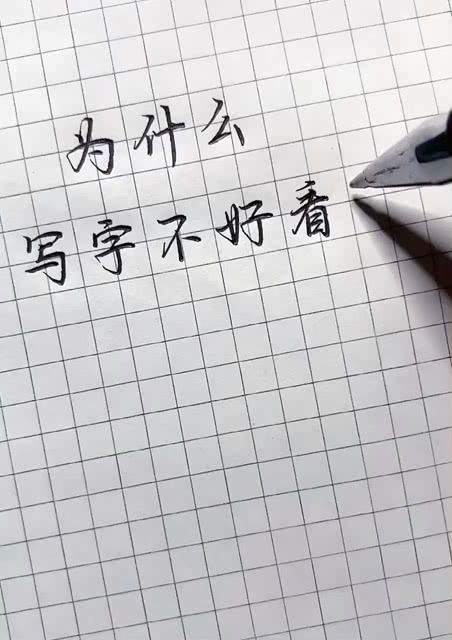 为什么
写字不好看